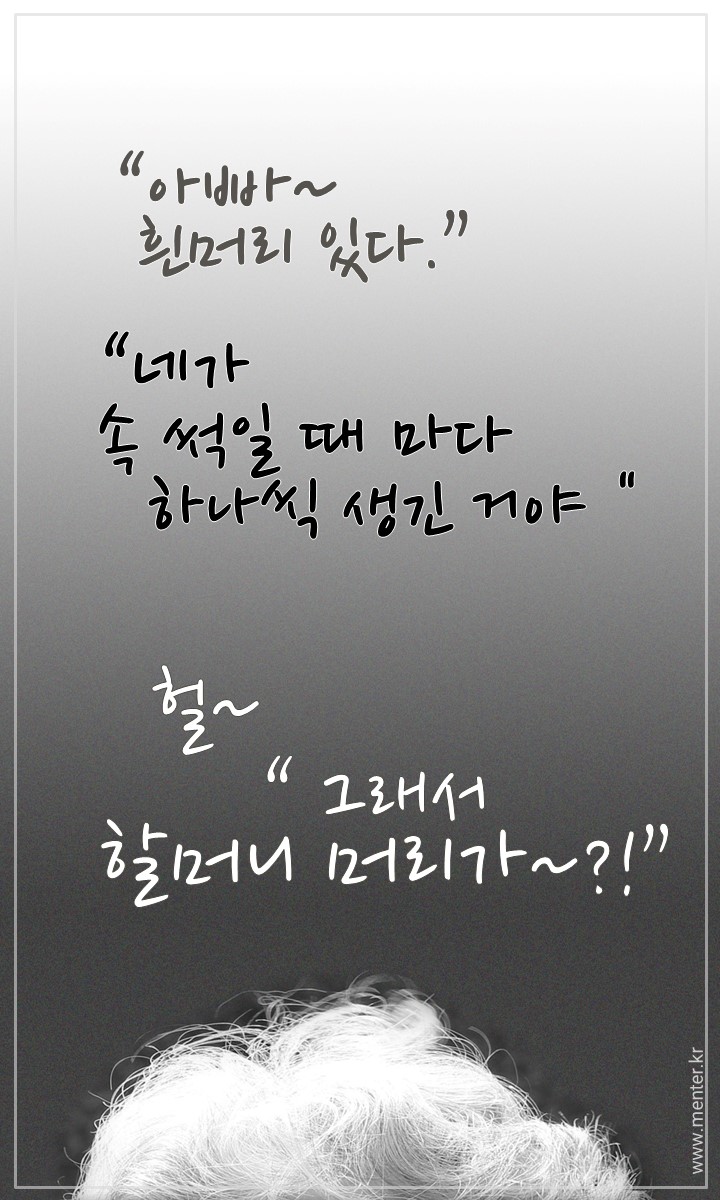 “아빠~
흰머리 있다.”
“네가
속 썩일 때 마다
하나씩 생긴 거야 "
헐~
“ 그래서
할머니 머리가~?!”
www.menter.kr